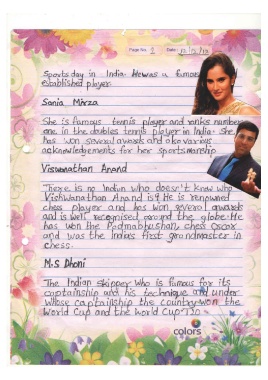 Page No. 2 Date:
Sports day in India. He was a famous
established player.
Sania Mirza
She is famous tennis player and ranks number
one in the doubles tennis player in India. She
has won several awards and also various
acknowledgements for her sportsmanship
Viswanathan Anand
There is no Indian who doesn't know who
Vishwanathan Anand is? He is renowned
chess player and has won several awards
and is well recognised around the globe. He
has won the Padmabhushan, chess Oscar
and was the India's first grandmaster in
chess.
M.S Dhoni
The Indian skipper who is famous for its
captainship and his technique and under
whose captainship the country won the
World Cup and the World Cup T20
colors